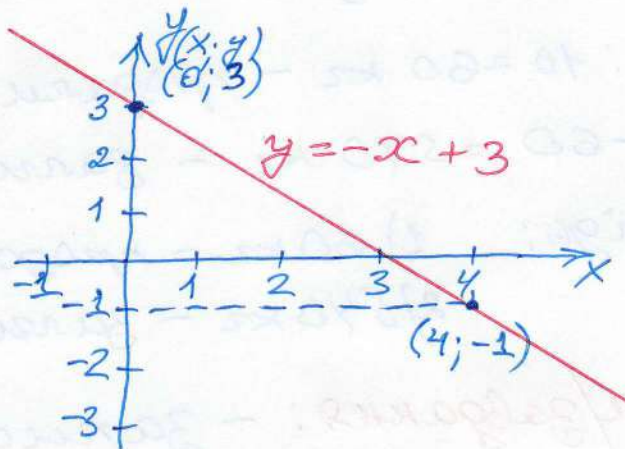 y
(x; y)
(0; 3)
3
y = -x + 3
2
1
-1 1 2 3 4 x
-1
(4; -1)
-2
-3